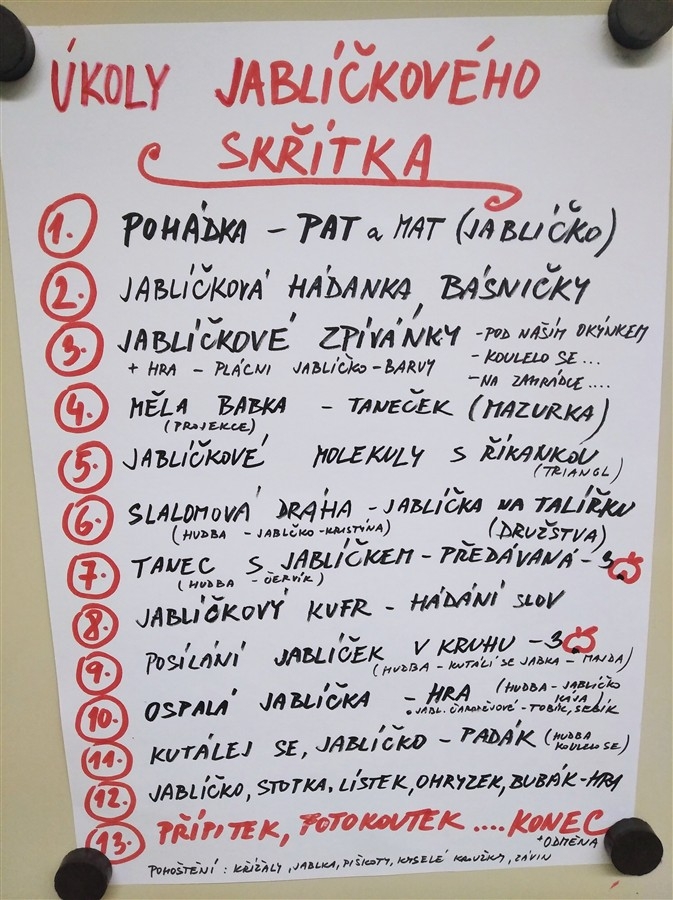 ÚKOLY JABLÍČKOVÉHO
SKŘÍTKA
1. POHÁDKA - PAT a MAT (JABLÍČKO)
2. JABLÍČKOVÁ HÁDANKA, BÁSNIČKY
3. JABLÍČKOVÉ ZPÍVÁNKY - POD NAŠÍM OKÝNKEM
+ HRA - PLÁCNI JABLÍČKO - BARVY - KOULELO SE...
- NA ZAHRÁDCE....
4. MĚLA BABKA - TANEČEK (MAZURKA)
(PROJEKCE)
5. JABLÍČKOVÉ MOLEKULY S ŘÍKANKOU
(TRIANGL)
6. SLALOMOVÁ DRÁHA - JABLÍČKA NA TALÍŘKU
(HUDBA - JABLÍČKO - KRISTÝNA) (DRUŽSTVA)
7. TANEC S JABLÍČKEM - PŘEDÁVANÁ - 3
(HUDBA - ČERVÍK)
8. JABLÍČKOVÝ KUFR - HÁDÁNÍ SLOV
9. POSÍLÁNÍ JABLÍČEK V KRUHU - 3
(HUDBA - KUTÁLÍ SE JABKA - MAJDA)
10. OSPALÁ JABLÍČKA - HRA (HUDBA - JABLÍČKO
KÁJA)
JABL. ČARODĚJOVÉ - TOBÍK, SEBÍK
11. KUTÁLEJ SE, JABLÍČKO - PADÁK (HUDBA
KOULELO SE)
12. JABLÍČKO, STOPKA, LÍSTEK, OHRYZEK, BUBÁK - HRA
13. PŘÍPITEK, FOTOKOUTEK .... KONEC
+ODMĚNA
POHOŠTĚNÍ: KŘÍŽALY, JABLKA, PIŠKOTY, KYSELÉ KROUŽKY, ZÁVIN